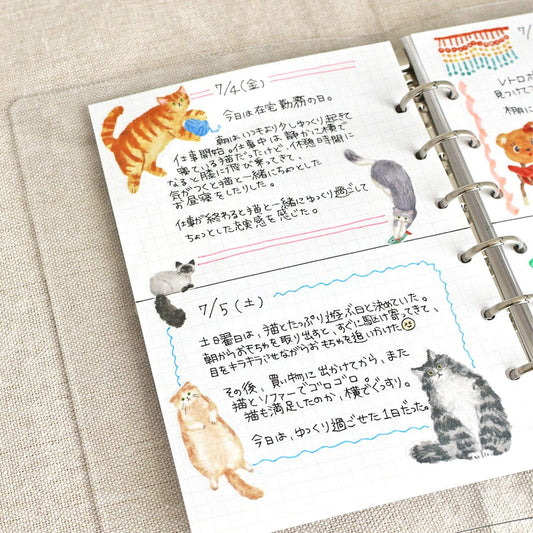 7/4(金)
今日は在宅勤務の日。
朝はいつもより少しゆっくり起きて
仕事開始。仕事中は静かに横で
寝ている猫だったけど、休憩時間に
なると膝に飛び乗ってきて、
気がつくと猫と一緒にちょっとした
お昼寝をしたりした。
仕事が終わると猫と一緒にゆっくり過ごして
ちょっとした充実感を感じた。
7/5(土)
土日曜日は、猫とたっぷり遊ぶ日と決めていた。
朝からおもちゃを取り出すと、すぐに駆け寄ってきて、
目をキラキラさせながらおもちゃを追いかけた
その後、買い物に出かけてから、また
猫とソファーでゴロゴロ。
猫も満足したのか、横でぐっすり。
今日は、ゆっくり過ごせた1日だった。
7/
レトロポ
見つけて
棚に